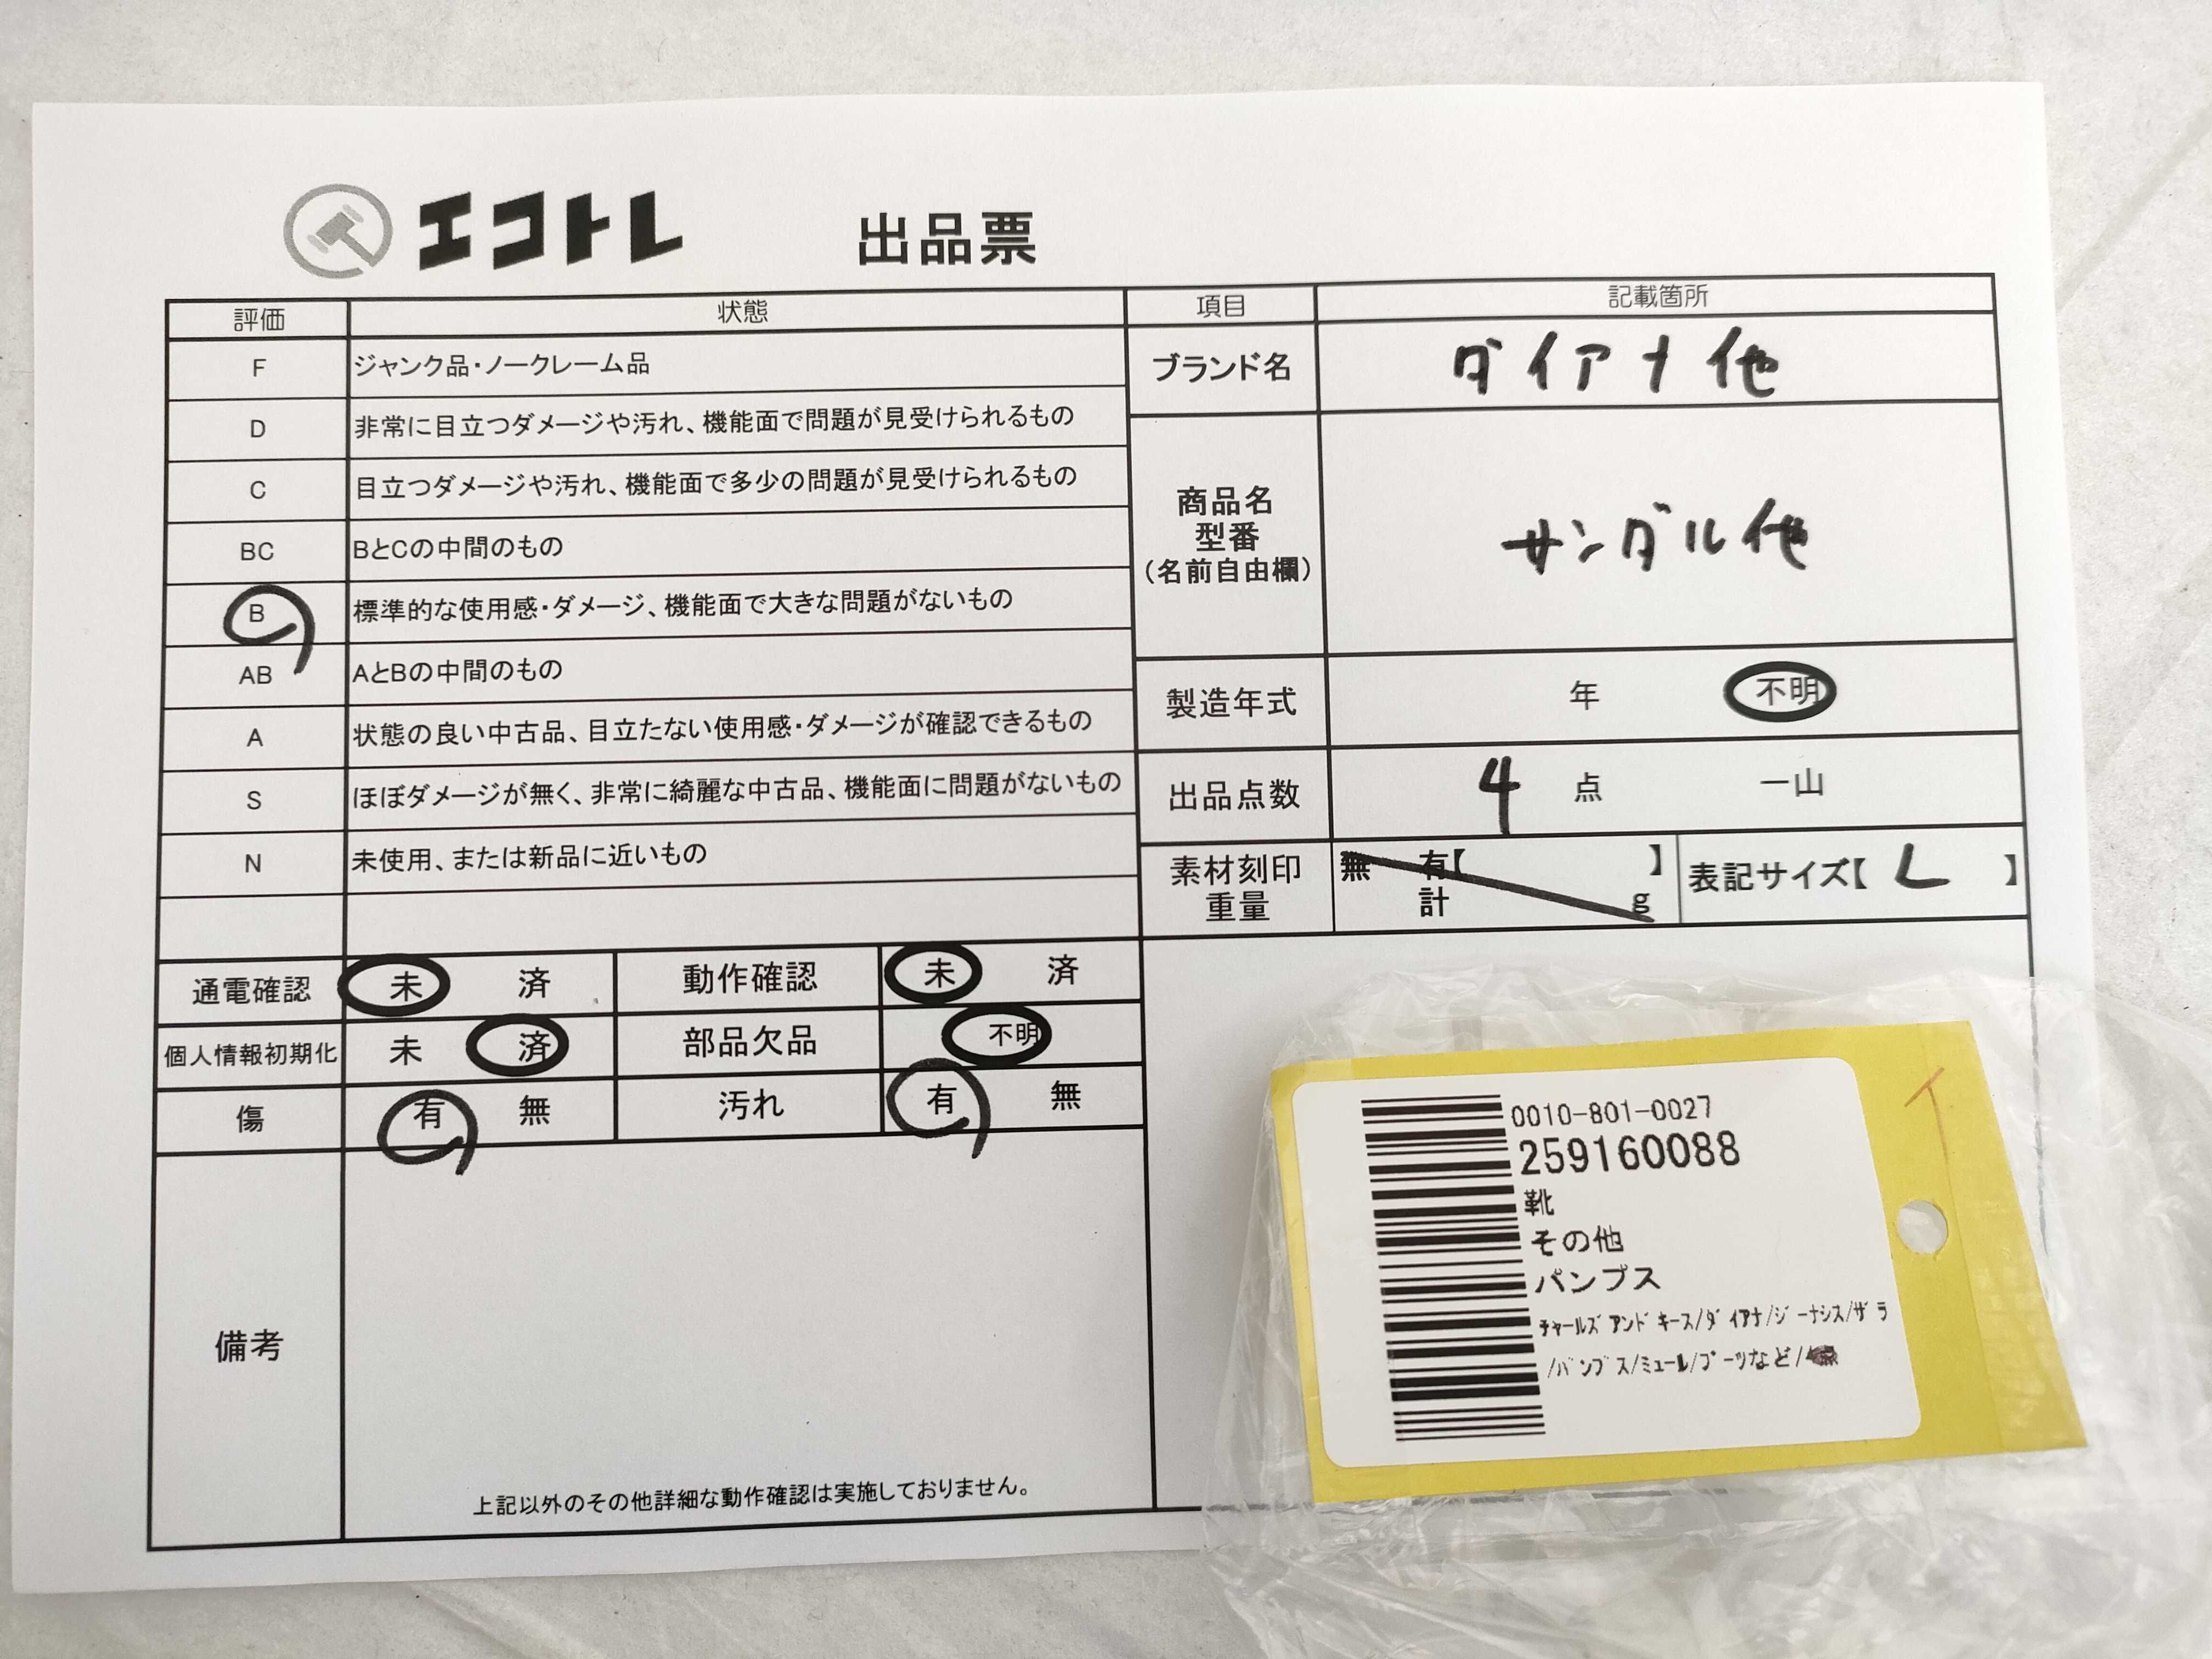 エコトレ 出品票
評価 状態
F ジャンク品・ノークレーム品
D 非常に目立つダメージや汚れ、機能面で問題が見受けられるもの
C 目立つダメージや汚れ、機能面で多少の問題が見受けられるもの
BC BとCの中間のもの
B 標準的な使用感・ダメージ、機能面で大きな問題がないもの
AB AとBの中間のもの
A 状態の良い中古品、目立たない使用感・ダメージが確認できるもの
S ほぼダメージが無く、非常に綺麗な中古品、機能面に問題がないもの
N 未使用、または新品に近いもの
項目 記載箇所
ブランド名 ダイアナ他
商品名
型番
(名前自由欄)
サンダル他
製造年式 年 不明
出品点数 4 点 一山
素材刻印 無 有【 】
重量 計 g
表記サイズ【 L 】
通電確認 未 済 動作確認 未 済
個人情報初期化 未 済 部品欠品 不明
傷 有 無 汚れ 有 無
備考
上記以外のその他詳細な動作確認は実施しておりません。
0010-801-0027
259160088
靴
その他
パンプス
チャールズアンドキース/ダイアナ/ジーナシス/ザラ
/パンプス/ミュール/ブーツなど/